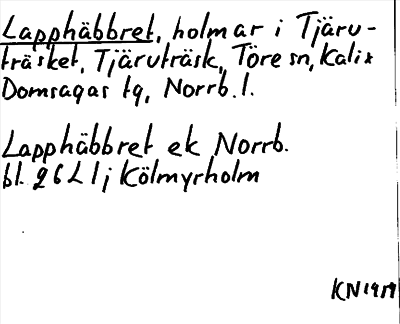 Lapphäbbret, holmar i Tjäru-
träsket, Tjäruträsk, Töre sn, Kalix
Domsagas tg, Norrb. l.
Lapphäbbret ek Norrb.
bl. 26 L 1 j Kölmyrholm